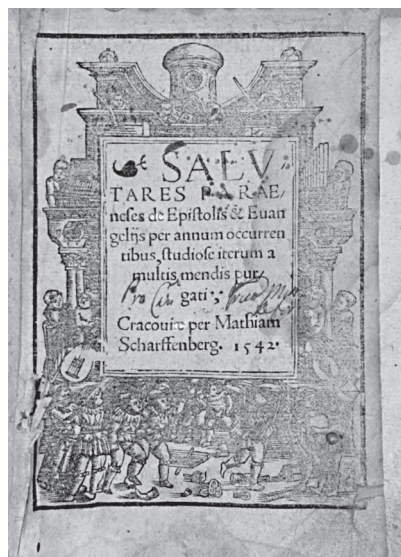 SALV-
TARES PARAE/
neses de Epistolis & Euan
gelijs per annum occurren
tibus, studiose iterum a
multis mendis pur/
Pro gati;
Cracouiæ per Mathiam
Scharffenberg. 1542.